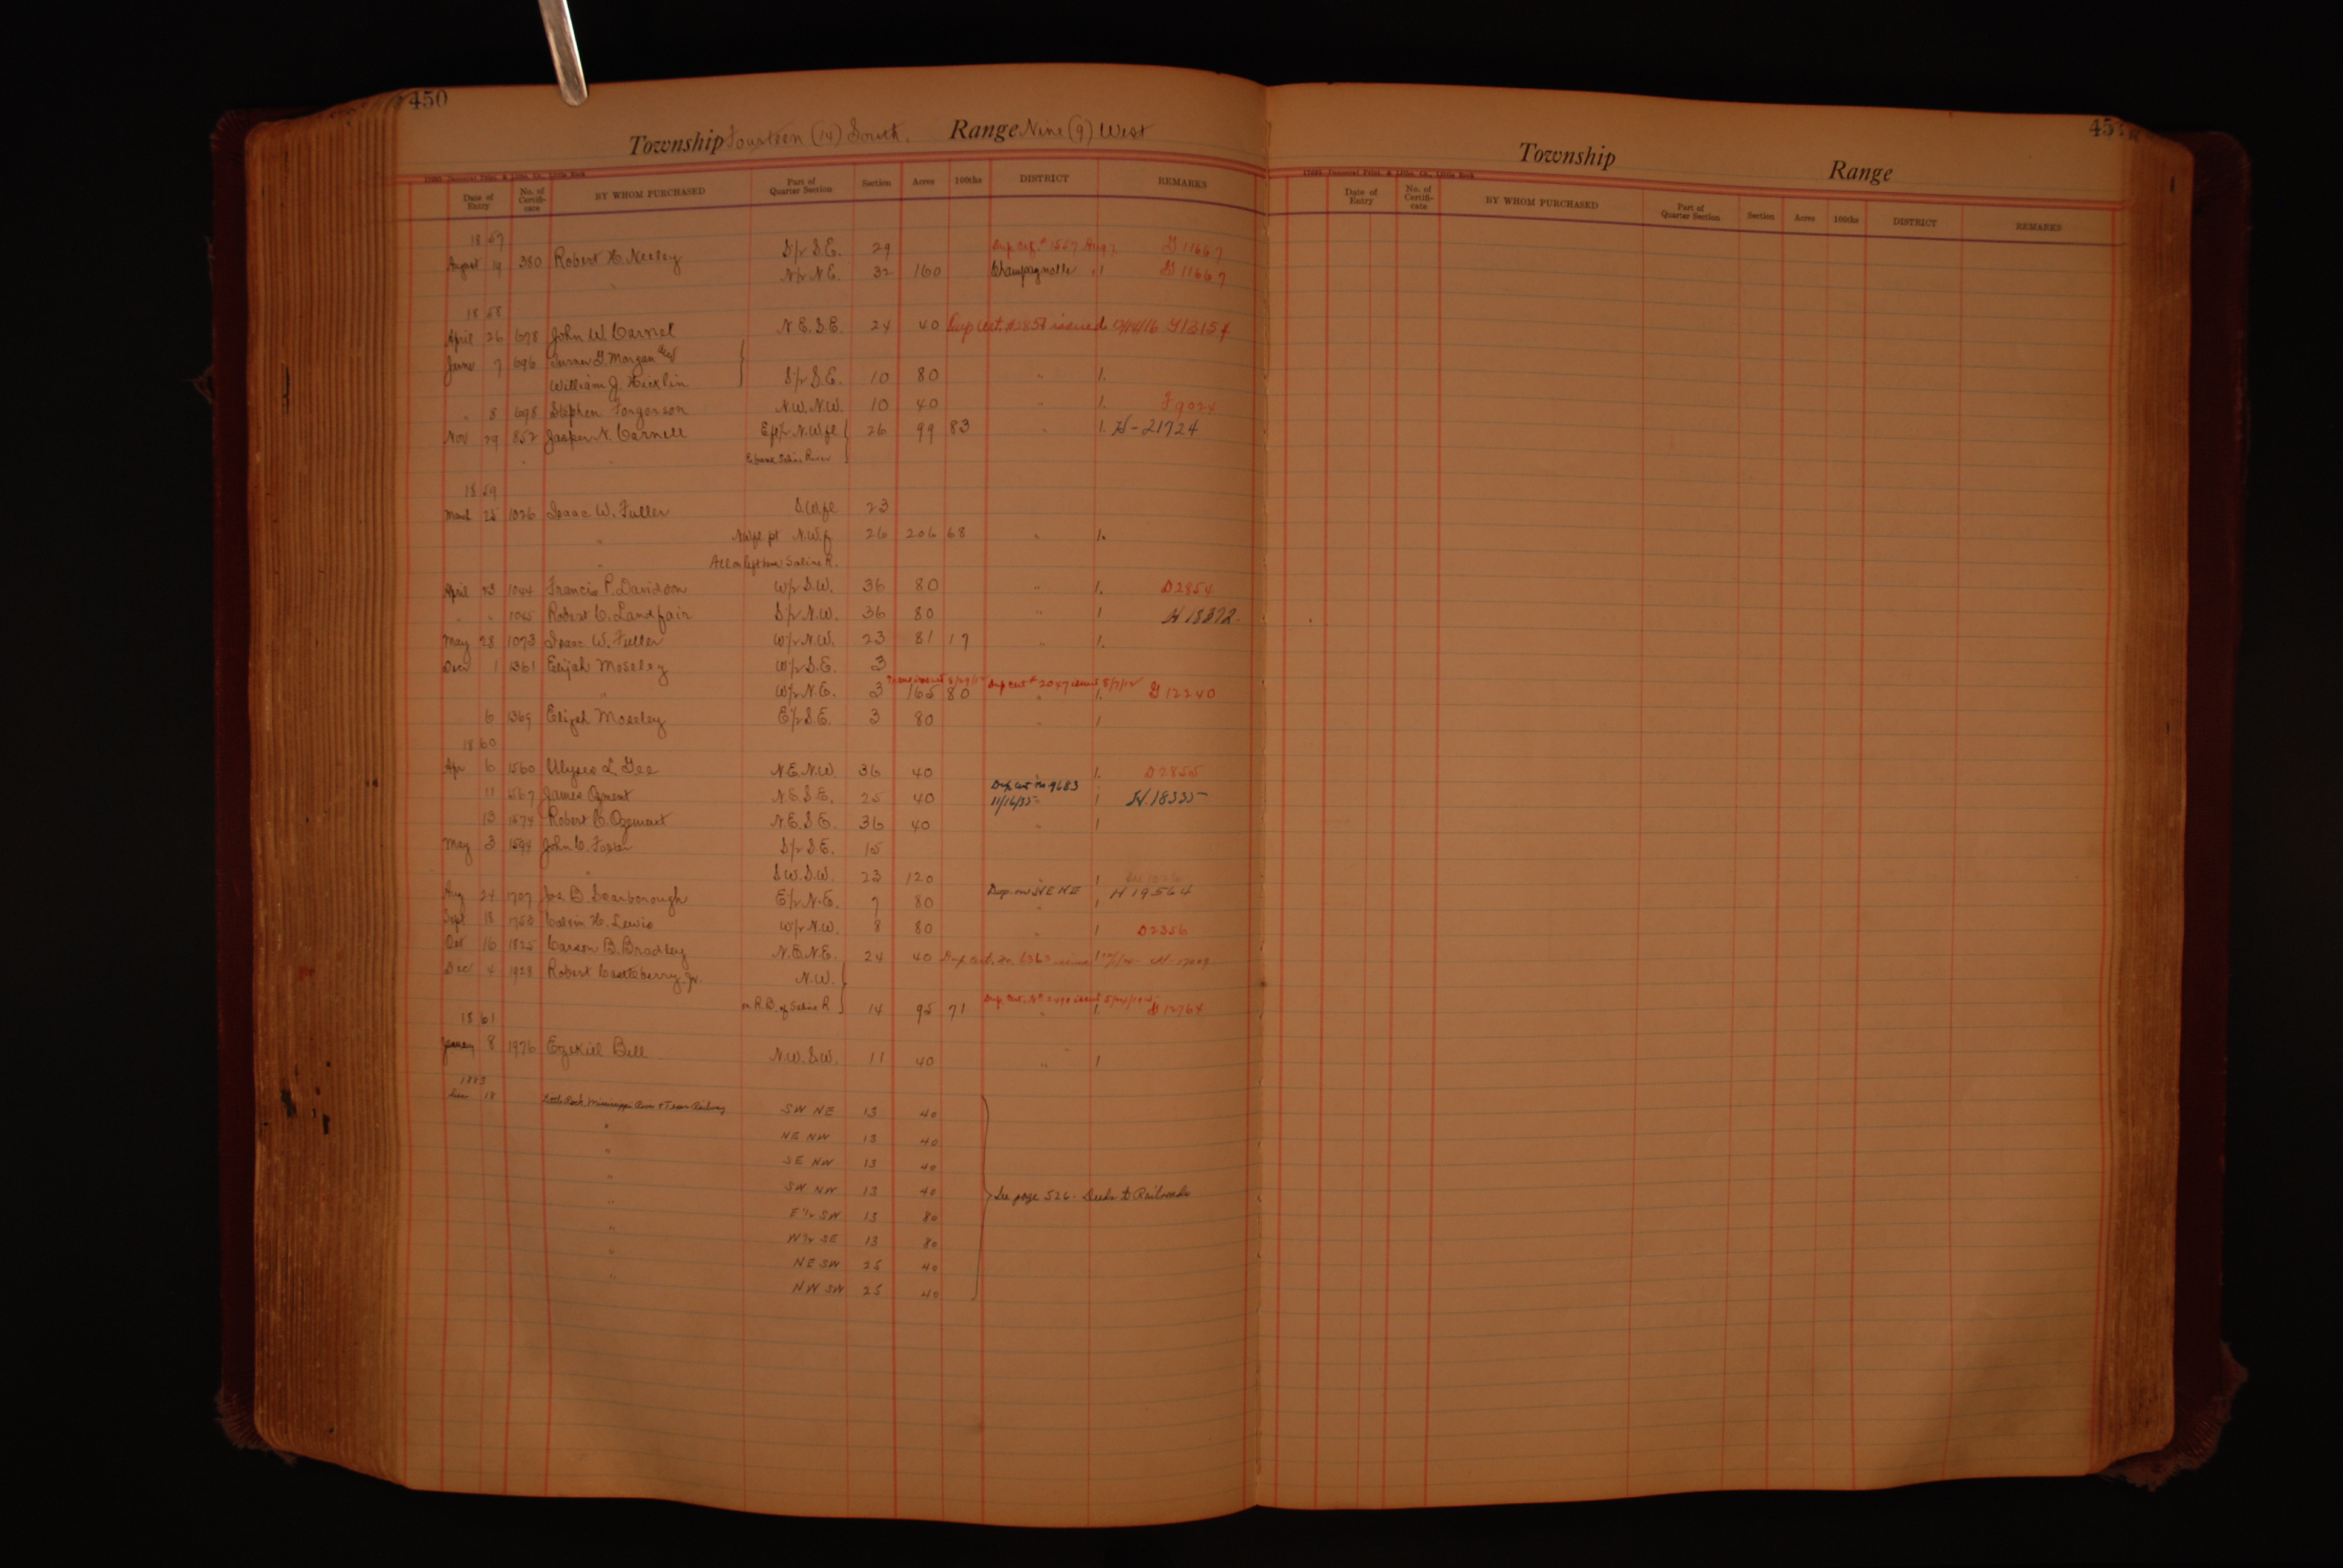 450
Township Fourteen (14) South. Range Nine (9) West
Date of Entry No. of Certifi-cate BY WHOM PURCHASED Part of Quarter Section Section Acres 100ths DISTRICT REMARKS
1857
August 19 380 Robert H. Neeley S½ S.E. 29 G 11667
N½ N.E. 32 160 Champagnolle " 1 G 11667
1858
April 26 678 John W. Carnel N.E. S.E. 24 40 Dup Cert. issued 12/14/16
June 7 696 Turner G. Morgan and
William J. Hicklin S½ S.E. 10 80 " 1.
" 8 698 Stephen Forgerson N.W. N.W. 10 40 " 1. F9024
Nov 29 852 Jasper N. Carnell N.W.fl 26 99 83 " 1. H-21724
Saline River
1859
March 25 1026 Isaac W. Fuller S.W.fl 23
" N.W.f 26 206 68 " 1.
" All on left bank Saline R.
April 23 1044 Francis P. Davidson W½ S.W. 36 80 " 1. D2854
" " 1045 Robert C. Landfair S½ N.W. 36 80 " 1 H 18372
May 28 1073 Isaac W. Fuller W½ N.W. 23 81 17 " 1.
Decr 1 1361 Elijah Moseley W½ S.E. 3
" W½ N.E. 3 165 80 Dup Cert # 2047 issued 8/7/12 " 1. G 12240
6 1369 Elijah Moseley E½ S.E. 3 80 " 1
1860
Apr 6 1560 Ulyses L. Gee N.E. N.W. 36 40 " 1. D2855
11 1567 James Ozment N.E. S.E. 25 40 Dup Cert No 9683 11/16/35 1 H.18335
13 1574 Robert C. Ozment N.E. S.E. 36 40 " 1
May 3 1594 John C. Foster S½ S.E. 15
" S.W. S.W. 23 120 " 1
Aug 24 1707 Jos. B. Scarborough E½ N.E. 7 80 Dup. on NE NE 1 H 19564
Sept 18 1753 Calvin H. Lewis W½ N.W. 8 80 " 1 D2356
Oct 16 1825 Carson B. Bradley N.E. N.E. 24 40 Dup Cert. No.
Dec 4 1928 Robert Castleberry Jr. N.W.
on R.B. of Saline R 14 95 71 Dup. Cert. No 2490 issued " 1. G 12764
1861
January 8 1976 Ezekiel Bell N.W. S.W. 11 40 " 1
1883
Dec 18 Little Rock Mississippi River & Texas Railway SW NE 13 40
" NE NW 13 40
" SE NW 13 40
" SW NW 13 40 See page 526. Deeds to Railroads
" E½ SW 13 80
" W½ SE 13 80
" NE SW 25 40
" NW SW 25 40
Township Range
Date of Entry No. of Certifi-cate BY WHOM PURCHASED Part of Quarter Section Section Acres 100ths DISTRICT REMARKS